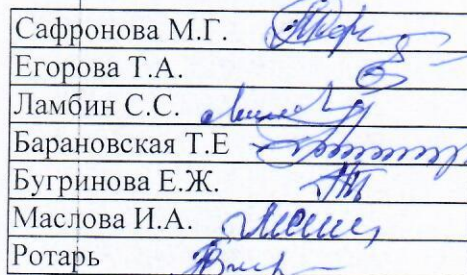 Сафронова М.Г.
Егорова Т.А.
Ламбин С.С.
Барановская Т.Е
Бугринова Е.Ж.
Маслова И.А.
Ротарь